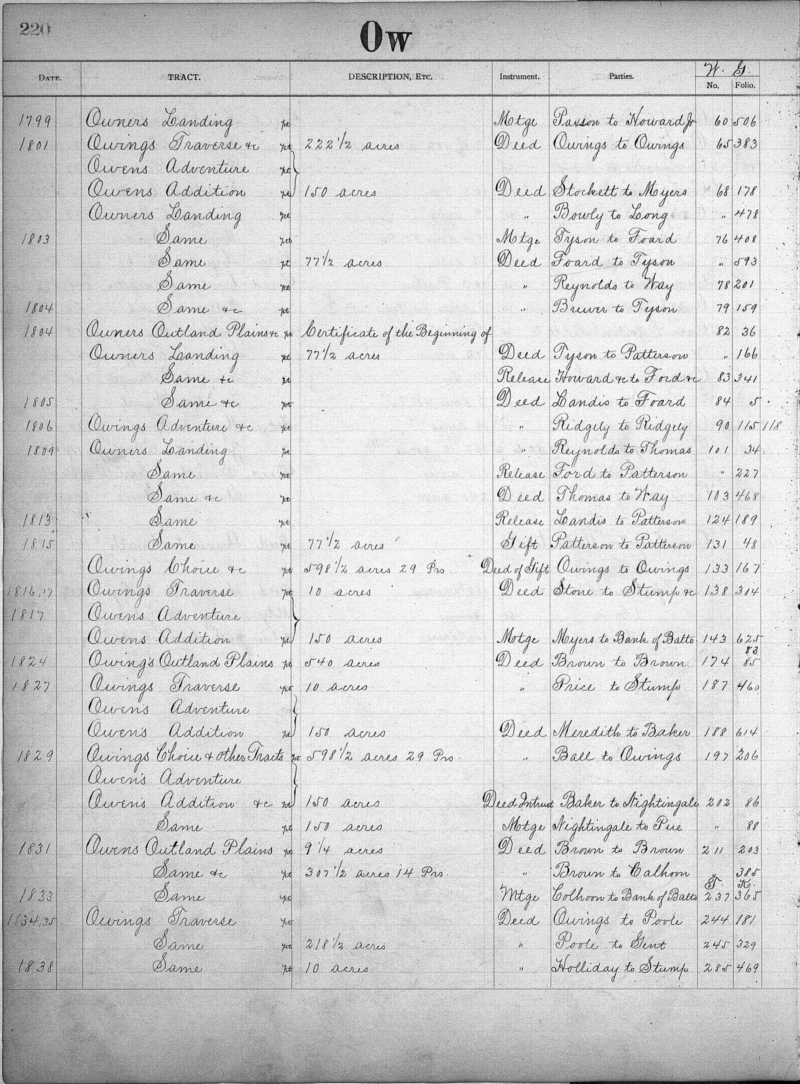 220
Ow
W. G.
DATE. TRACT. DESCRIPTION, ETC. Instrument. Parties. No. Folio.
1799 Owners Landing pt Mtge Paxson to Howard Jr 60 506
1801 Owings Traverse &c pt 222 1/2 acres Deed Owings to Owings 65 383
Owens Adventure pt
Owens Addition pt 150 acres Deed Stockett to Myers 68 178
Owners Landing pt " Bowly to Long " 478
1803 Same pt Mtge Tyson to Foard 76 408
Same pt 77 1/2 acres Deed Foard to Tyson " 593
Same pt " Reynolds to Way 78 201
1804 Same &c pt " Brewer to Tyson 79 159
1804 Owners Outland Plains &c pt Certificate of the Beginning of 82 36
Owners Landing pt 77 1/2 acres Deed Tyson to Patterson " 166
Same &c pt Release Howard &c to Ford &c 83 341
1805 Same &c pt Deed Landis to Foard 84 5
1806 Owings Adventure &c pt " Ridgely to Ridgely 90 115 118
1809 Owners Landing pt " Reynolds to Thomas 101 34
Same pt Release Ford to Patterson " 227
Same &c pt Deed Thomas to Way 103 468
1813 " Same pt Release Landis to Patterson 124 189
1815 Same pt 77 1/2 acres Gift Patterson to Patterson 131 48
Owings Choice &c pt 598 1/2 acres 29 Prs Deed of Gift Owings to Owings 133 167
1816,17 Owings Traverse pt 10 acres Deed Stone to Stump &c 138 304
1817 Owens Adventure
Owens Addition pt 150 acres Mtge Myers to Bank of Balto 143 625
83
1824 Owing's Outland Plains pt 540 acres Deed Brown to Brown 174 85
1827 Owings Traverse pt 10 acres " Price to Stump 187 460
Owen's Adventure
Owen's Addition pt 150 acres Deed Meredith to Baker 188 614
1829 Owings Choice & other Tracts pt 598 1/2 acres 29 Prs. " Ball to Owings 197 206
Owen's Adventure
Owen's Addition &c pt 150 acres Deed Intrust Baker to Nightingale 202 86
Same pt 150 acres Mtge Nightingale to Pue " 88
1831 Owens Outland Plains pt 9 1/4 acres Deed Brown to Brown 211 203
Same &c pt 307 1/2 acres 14 Prs. " Brown to Calhoon 385
T. K.
1833 Same pt Mtge Colhoon to Bank of Balto 237 365
1834,35 Owings Traverse pt Deed Owings to Poole 244 181
Same pt 218 1/2 acres " Poole to Gent 245 329
1838 Same pt 10 acres " Holliday to Stump 285 469